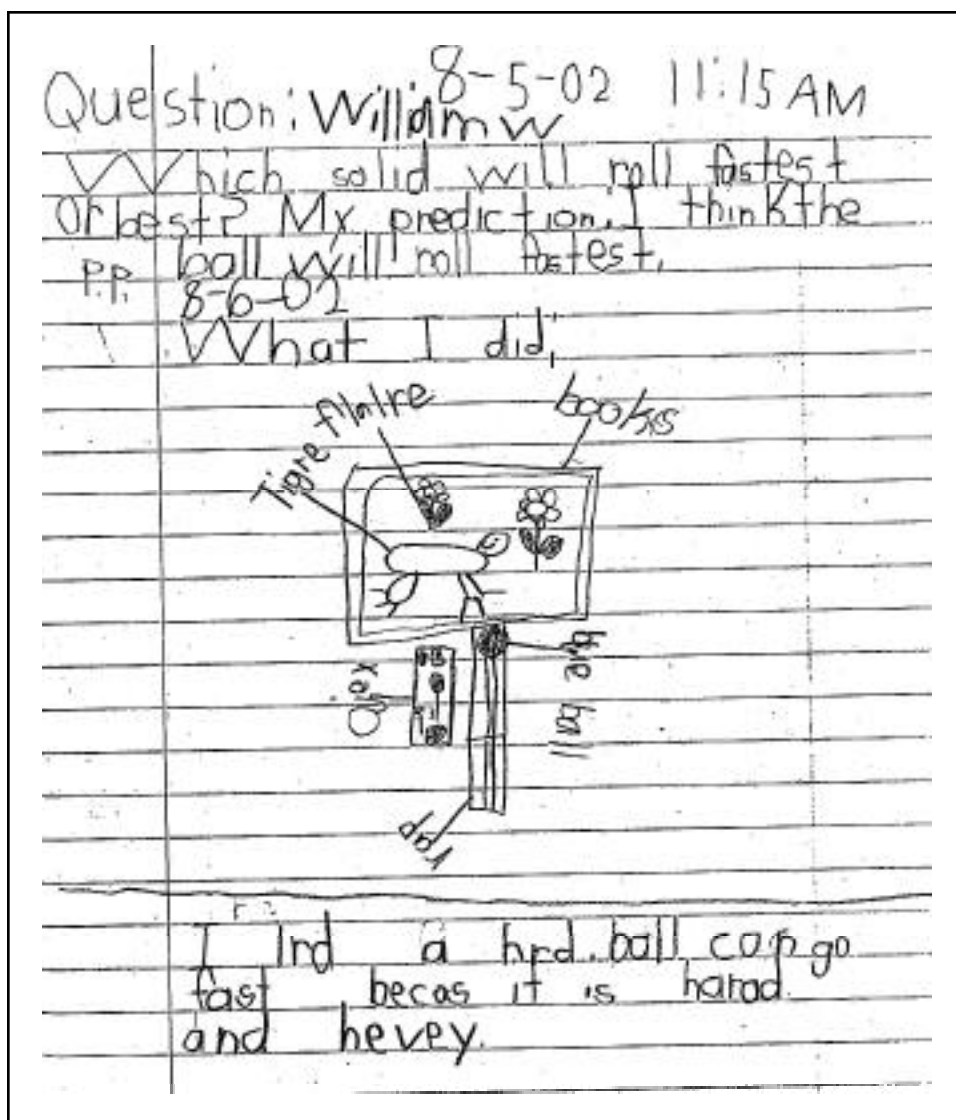 8-5-02 11:15 AM
Question: William W
Which solid will roll fastest
or best? My prediction: I think the
ball will roll fastest.
P.P.
8-6-02
What I did;
books
Tigre
blue ball
rap
I lrd a hrd. ball can go
fast becas it is harad.
and hevey.